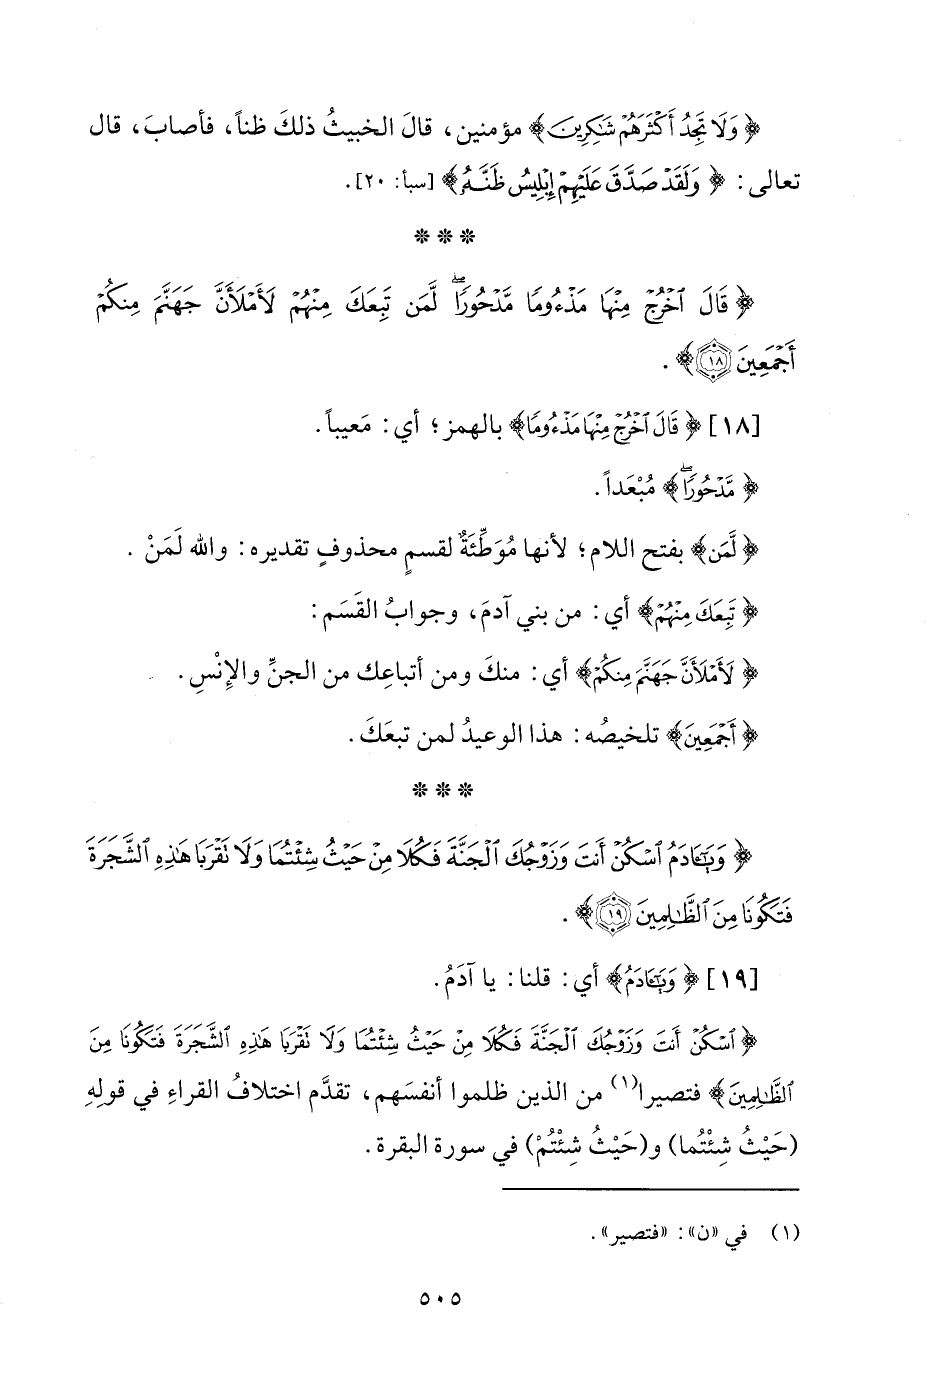 ﴿ وَلَا تَجِدُ أَكْثَرَهُمْ شَٰكِرِينَ﴾ مؤمنين، قالَ الخبيثُ ذلكَ ظناً، فأصابَ، قال
تعالى: ﴿ وَلَقَدْ صَدَّقَ عَلَيْهِمْ إِبْلِيسُ ظَنَّهُۥ﴾ [سبأ: ٢٠].
* * *
﴿ قَالَ ٱخْرُجْ مِنْهَا مَذْءُومًا مَّدْحُورًاۖ لَّمَن تَبِعَكَ مِنْهُمْ لَأَمْلَأَنَّ جَهَنَّمَ مِنكُمْ
أَجْمَعِينَ ١٨﴾ .
[١٨] ﴿ قَالَ ٱخْرُجْ مِنْهَا مَذْءُومًا﴾ بالهمز؛ أي: مَعيباً.
﴿ مَّدْحُورًاۖ﴾ مُبْعَداً.
﴿ لَّمَن﴾ بفتح اللام؛ لأنها مُوَطِّئَةٌ لقسمٍ محذوفٍ تقديره: والله لَمَنْ .
﴿ تَبِعَكَ مِنْهُمْ﴾ أي: من بني آدمَ، وجوابُ القَسَم:
﴿ لَأَمْلَأَنَّ جَهَنَّمَ مِنكُمْ﴾ أي: منكَ ومن أتباعِك من الجنِّ والإِنْسِ.
﴿ أَجْمَعِينَ﴾ تلخيصُه: هذا الوعيدُ لمن تبعَكَ.
* * *
﴿ وَيَٰٓـَٔادَمُ ٱسْكُنْ أَنتَ وَزَوْجُكَ ٱلْجَنَّةَ فَكُلَا مِنْ حَيْثُ شِئْتُمَا وَلَا تَقْرَبَا هَٰذِهِ ٱلشَّجَرَةَ
فَتَكُونَا مِنَ ٱلظَّٰلِمِينَ ١٩﴾ .
[١٩] ﴿ وَيَٰٓـَٔادَمُ﴾ أي: قلنا: يا آدَمُ.
﴿ ٱسْكُنْ أَنتَ وَزَوْجُكَ ٱلْجَنَّةَ فَكُلَا مِنْ حَيْثُ شِئْتُمَا وَلَا تَقْرَبَا هَٰذِهِ ٱلشَّجَرَةَ فَتَكُونَا مِنَ
ٱلظَّٰلِمِينَ﴾ فتصيرا(١) من الذين ظلموا أنفسَهم، تقدَّم اختلافُ القراءِ في قولِهِ
(حَيْثُ شِئْتُما) و(حَيْثُ شِئْتُمْ) في سورة البقرة.
(١) في «ن»: «فتصير».
٥٠٥